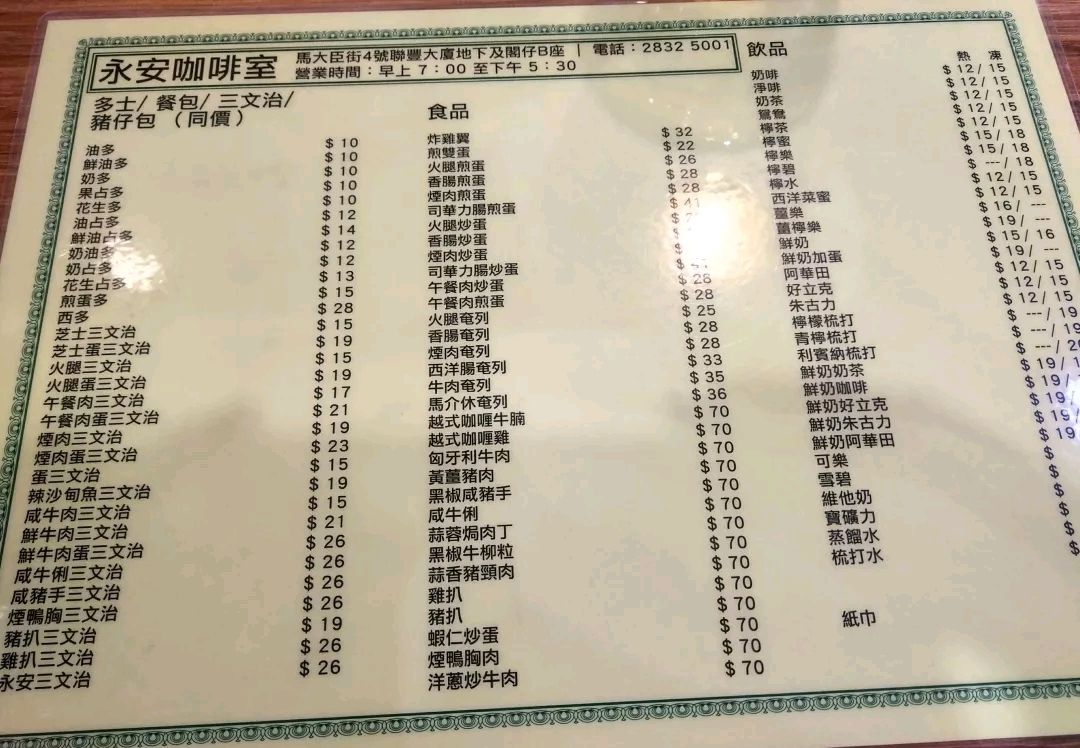 永安咖啡室
馬大臣街4號聯豐大廈地下及閣仔B座 | 電話：2832 5001
營業時間：早上 7：00 至下午 5：30
多士/ 餐包/ 三文治/
豬仔包 （同價）
油多 $ 10
鮮油多 $ 10
奶多 $ 10
果占多 $ 10
花生多 $ 10
油占多 $ 12
鮮油占多 $ 14
奶油多 $ 12
奶占多 $ 12
花生占多 $ 13
煎蛋多 $ 15
西多 $ 28
芝士三文治 $ 15
芝士蛋三文治 $ 19
火腿三文治 $ 15
火腿蛋三文治 $ 19
午餐肉三文治 $ 17
午餐肉蛋三文治 $ 21
煙肉三文治 $ 19
煙肉蛋三文治 $ 23
蛋三文治 $ 15
辣沙甸魚三文治 $ 19
咸牛肉三文治 $ 15
鮮牛肉三文治 $ 21
鮮牛肉蛋三文治 $ 26
咸牛脷三文治 $ 26
咸豬手三文治 $ 26
煙鴨胸三文治 $ 26
豬扒三文治 $ 19
雞扒三文治 $ 26
永安三文治 $ 26
食品
炸雞翼 $ 32
煎雙蛋 $ 22
火腿煎蛋 $ 26
香腸煎蛋 $ 28
煙肉煎蛋 $ 28
司華力腸煎蛋 $ 41
火腿炒蛋
香腸炒蛋
煙肉炒蛋
司華力腸炒蛋
午餐肉炒蛋 $ 28
午餐肉煎蛋 $ 28
火腿奄列 $ 25
香腸奄列 $ 28
煙肉奄列 $ 28
西洋腸奄列 $ 33
牛肉奄列 $ 35
馬介休奄列 $ 36
越式咖喱牛腩 $ 70
越式咖喱雞 $ 70
匈牙利牛肉 $ 70
黃薑豬肉 $ 70
黑椒咸豬手 $ 70
咸牛脷 $ 70
蒜蓉焗肉丁 $ 70
黑椒牛柳粒 $ 70
蒜香豬頸肉 $ 70
雞扒 $ 70
豬扒 $ 70
蝦仁炒蛋 $ 70
煙鴨胸肉 $ 70
洋蔥炒牛肉 $ 70
飲品
熱 凍
奶啡 $ 12/ 15
淨啡 $ 12/ 15
奶茶 $ 12/ 15
鴛鴦 $ 12/ 15
檸茶 $ 12/ 15
檸蜜 $ 15/ 18
檸樂 $ 15/ 18
檸碧 $ ---/ 18
檸水 $ 12/ 15
西洋菜蜜 $ 12/ 15
薑樂 $ 16/ ---
薑檸樂 $ 19/ ---
鮮奶 $ 15/ 16
鮮奶加蛋 $ 19/ ---
阿華田 $ 12/ 15
好立克 $ 12/ 15
朱古力 $ 12/ 15
檸檬梳打 $ ---/ 19
青檸梳打 $ ---/ 19
利賓納梳打 $ ---/
鮮奶奶茶 $ 19/
鮮奶咖啡 $ 19/
鮮奶好立克 $ 19/
鮮奶朱古力 $ 19/
鮮奶阿華田 $ 19
可樂 $
雪碧 $
維他奶 $
寶礦力 $
蒸餾水 $
梳打水 $
紙巾